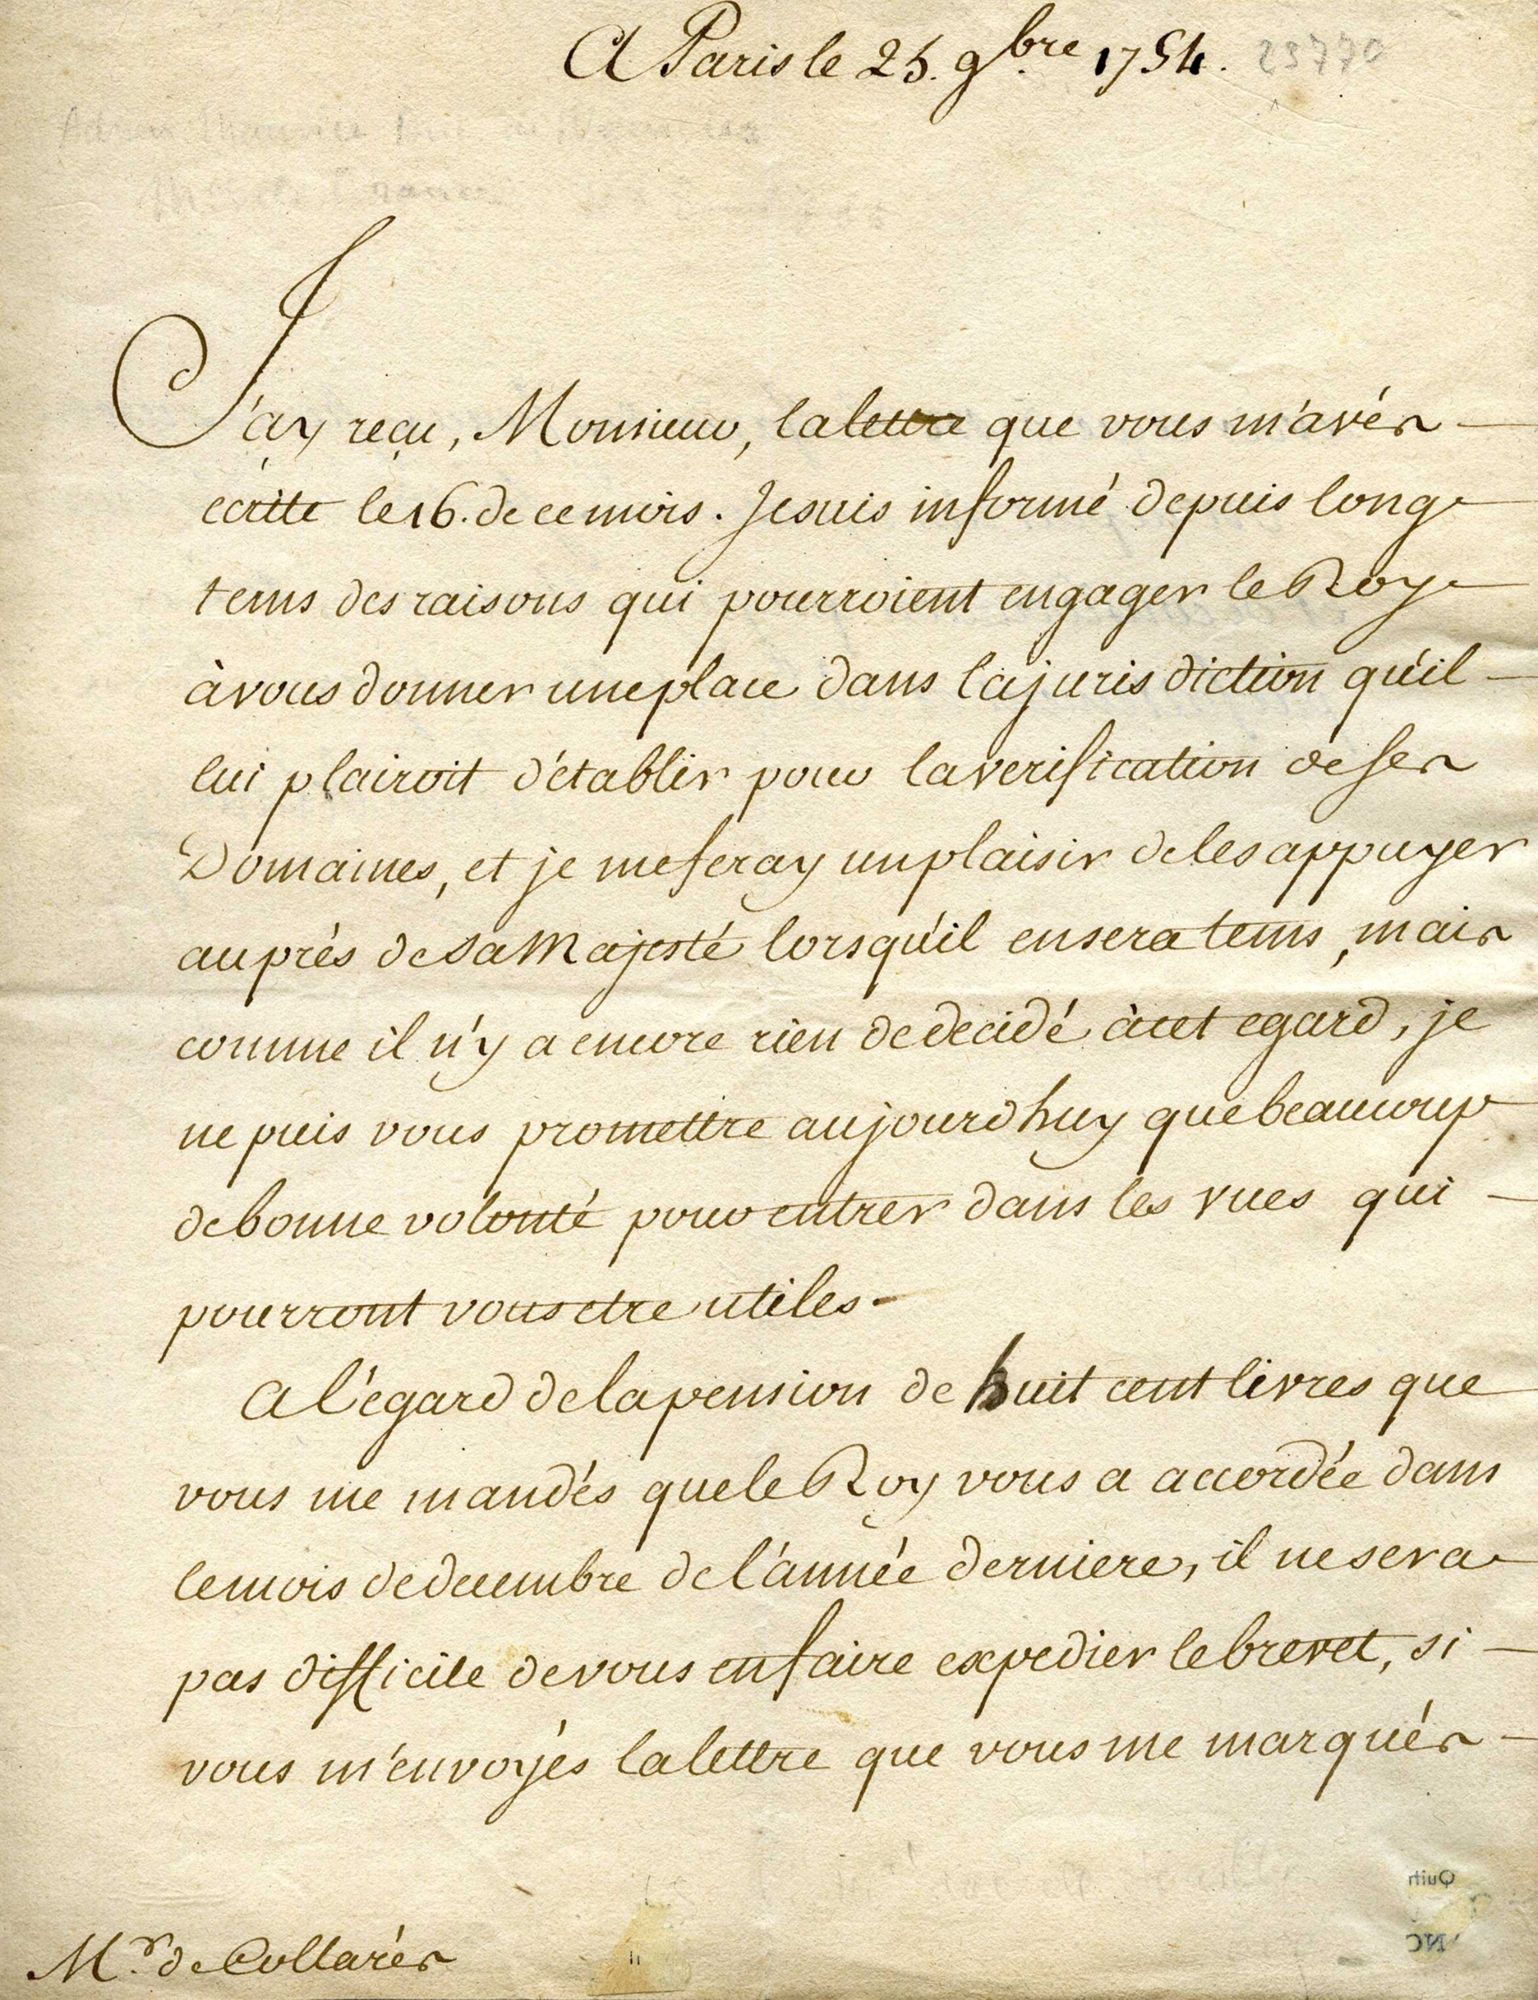 A Paris le 25. 9bre 1754. 23770
J'ay reçu, Monsieur, la lettre que vous m'avés
écrite le 16. de ce mois. Je suis informé depuis long
tems des raisons qui pourroient engager le Roy
à vous donner une place dans la jurisdiction qu'il
lui plairoit d'établir pour la verification de ses
Domaines, et je me feray un plaisir de les appuyer
auprès de Sa Majesté lorsqu'il en sera tems, mais
comme il n'y a encore rien de decidé à cet egard, je
ne puis vous promettre aujourdhuy que beaucoup
de bonne volonté pour entrer dans les vues qui
pourront vous etre utiles.
A l'égard de la pension de huit cent livres que
vous me mandés que le Roy vous a accordée dans
le mois de decembre de l'année derniere, il ne sera
pas difficile de vous en faire expedier le brevet, si
vous m'envoyés la lettre que vous me marqués
Mr. de Collarés